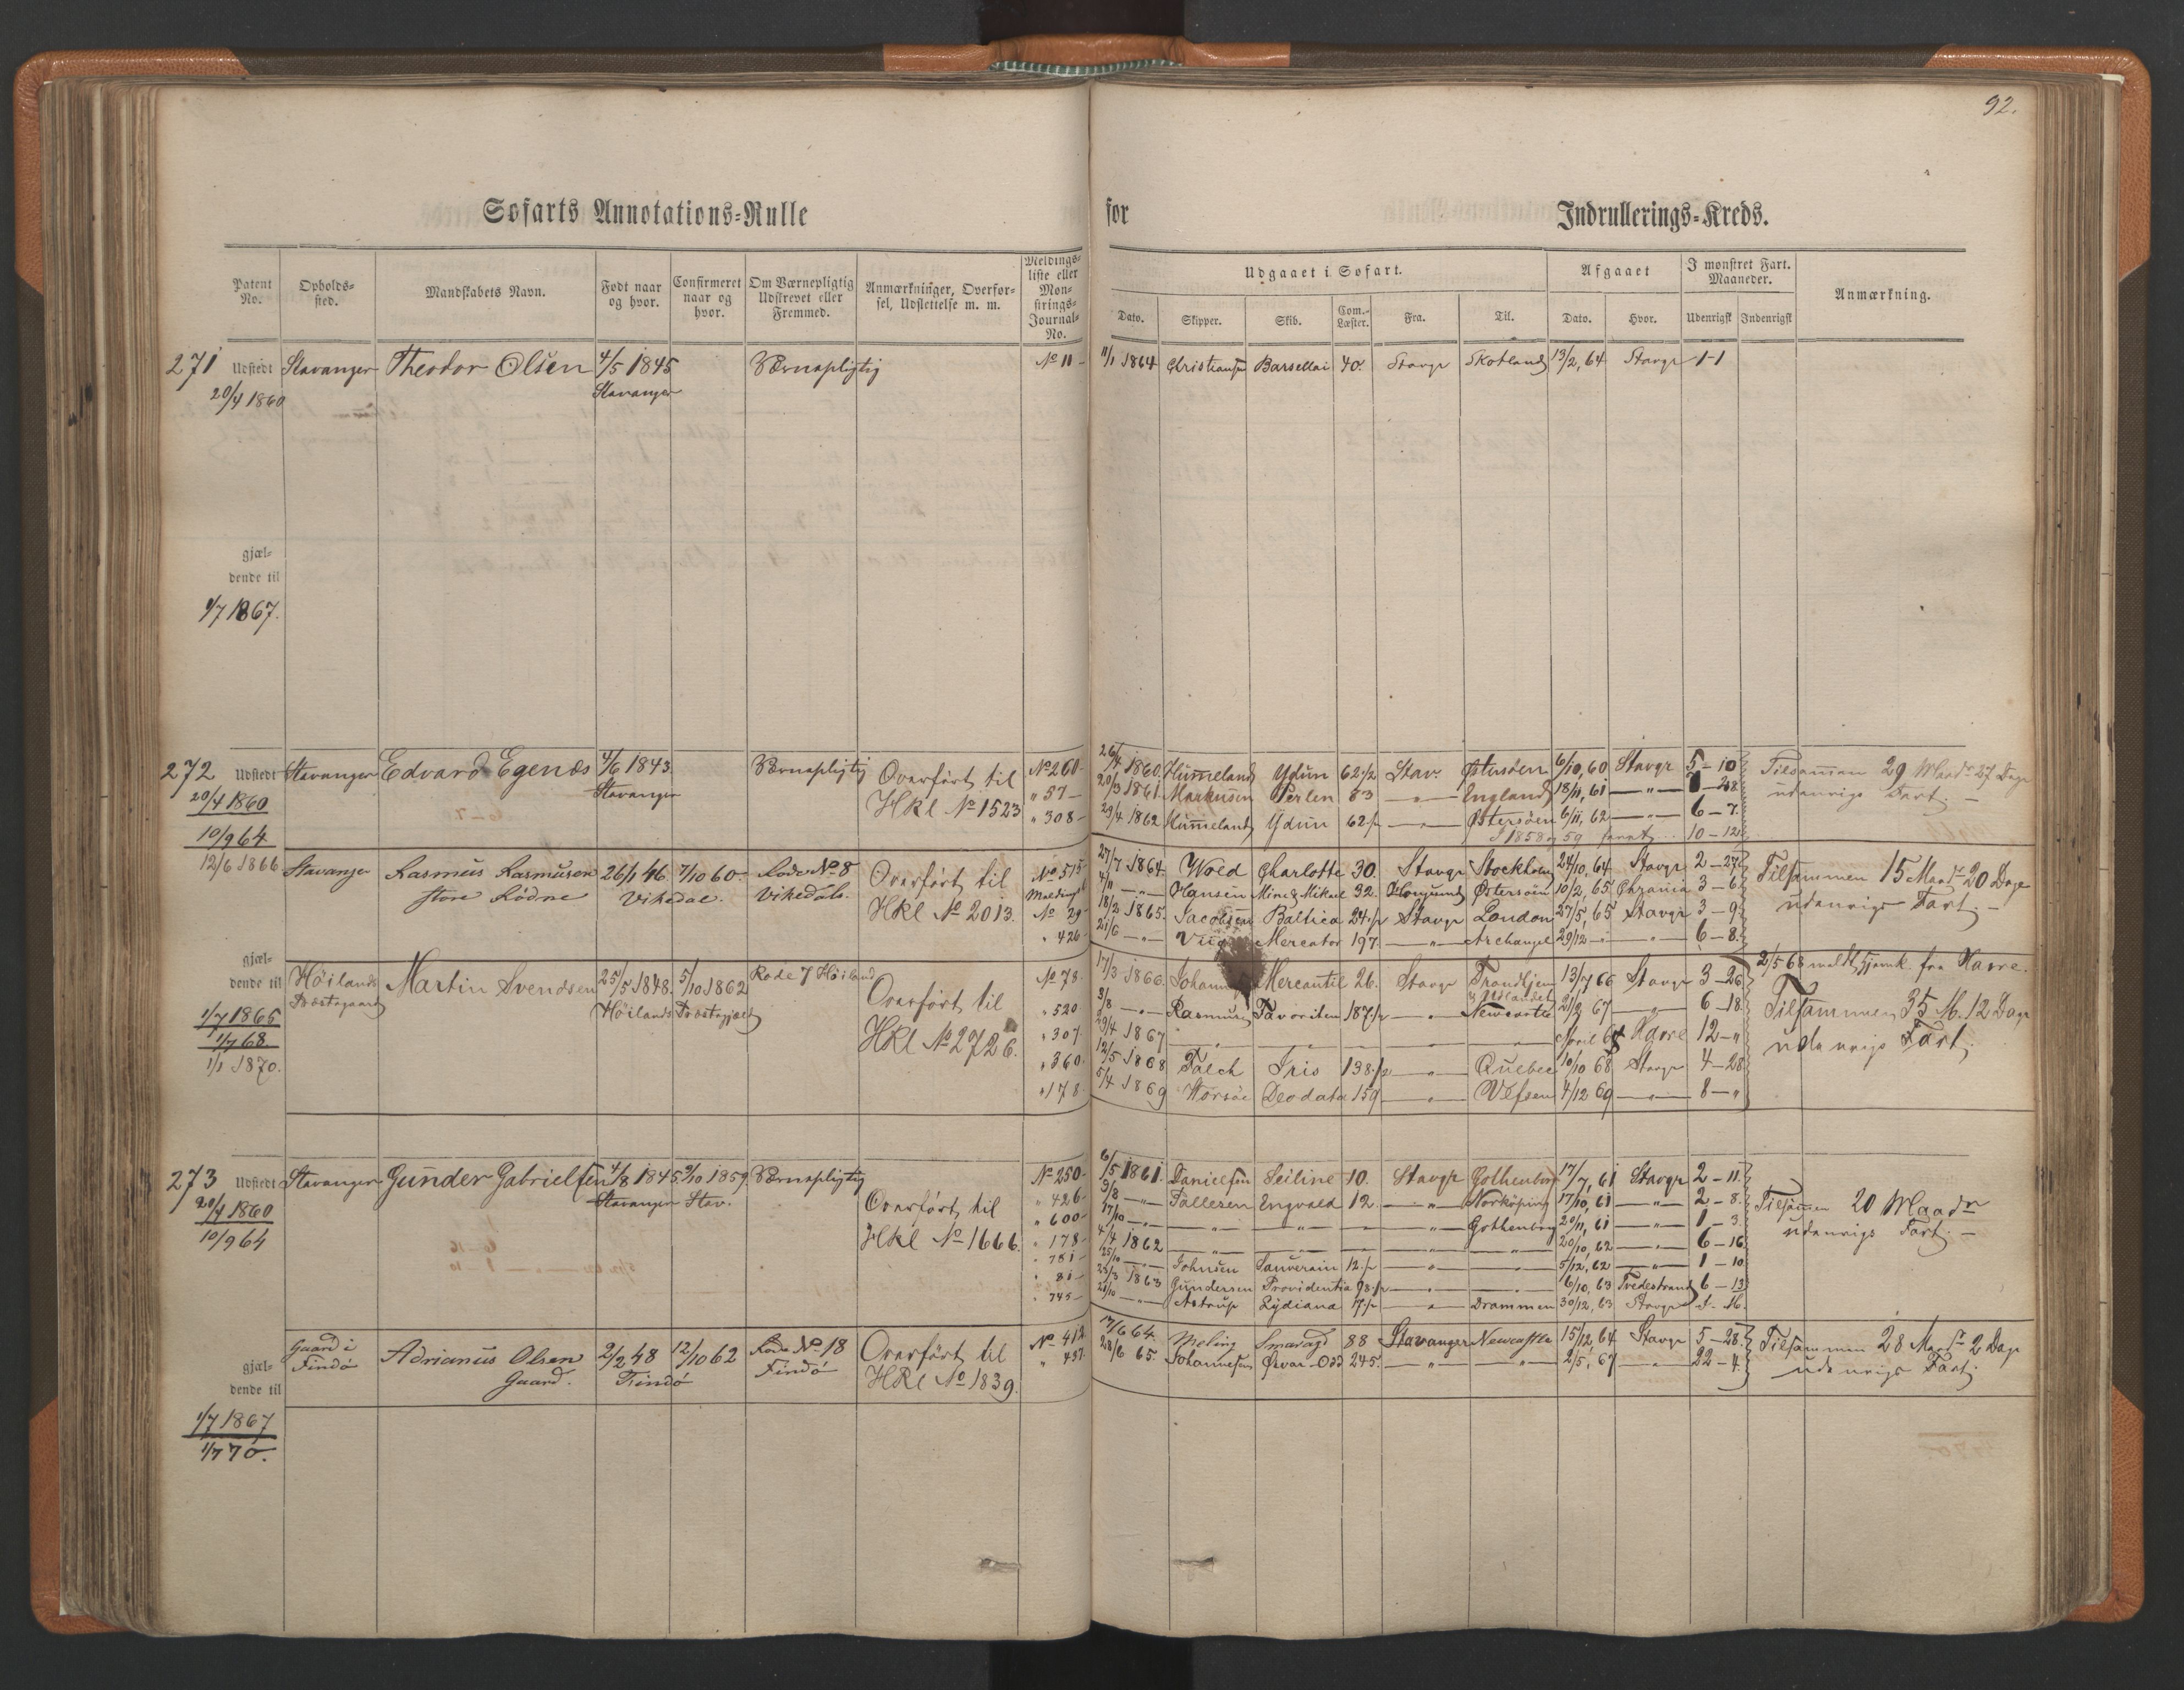 92.
Søfarts Annotations-Rulle for Indrullerings-Kreds.
Patent No. | Opholds-sted. | Mandskabets Navn. | Født naar og hvor. | Confirmeret naar og hvor. | Om Værnepligtig Udskrevet eller Fremmed. | Anmærkninger, Overfør-sel, Udslettelse m. m. | Meldings-liste eller Mon-strings-Journal-No. | Udgaaet i Søfart. | Afgaaet | I mønstret Fart. Maaneder. | Anmærkning.
Dato. | Skipper. | Skib. | Com.-Læster. | Fra. | Til. | Dato. | Hvor. | Udenrigsk | Indenrigsk
271 Udstedt Stavanger Theodor Olsen 4/5 1845 Værnepligtig No 11 - 11/1 1864 Christiansen 40. Stavgr Skotland 13/2, 64 Stavgr 1-1
20/4 1860 Stavanger
gjæl-
dende til
1/7 1867.
272 Udstedt Stavanger Edvard Egenæs 4/6 1843. Værnepligtig Overført til No 260- 26/4 1860. Hummeland Ydun 62 1/2 Stav. Østersøen 6/10, 60 Stavgr 5-10 Tilsammen 29 Maadr 27 Dage
20/4 1860 Stavanger Hkl No 1523 " 57- 20/3 1861. Markusen Perlen 53 —"— England 18/11, 61 —"— -28 udenrigs Fart. -
10/9 64 " 308- 29/4 1862 Hummeland Ydun 62 1/2 —"— Østersøen 6/11, 62 —"— 6-7.
I 1858 og 59 10-12
12/6 1866 Stavanger Rasmus Rasmusen 26/1 46. 7/10 60. Rode No 8 Overført til No 515 27/7 1864. Wold Charlotte 30. Stavgr Stockholm 24/10, 64 Stavgr 2-27 Tilsammen 15 Maadr 20 Dage
store Lødne Vikedal. Vikedals. Hkl No 2013. 4/11 —"— Hansen Mine & Mikael 32. Østersøen 10/2, 65 3-6 udenrigs Fart. -
No 29- 18/2 1865. Jacobsen Baltica 24 1/2 Stavgr London 27/5, 65 Stavgr 3-9
" 426- 21/6 —"— Mercator 197. —"— Archangel 29/12 —"— —"— 6-8.
gjæl-
dende til
1/7 1865
1/7 68.
1/1 1870.
Høilands Martin Svendsen 25/5 1848. 5/10 1862 Rode 7 Høiland Overført til No 78. 17/3 1866. Mercantil 26. Stavgr Trondhjem 13/7 66 Stavgr 3-26 2/5 68 fra Havre.
Præstegaard Høilands Præstegjæld Hkl No 2726. " 520. 3/8 —"— Rasmusen Favoriten 187 1/2 —"— Newcastle 21/2 67 —"— 6-18 Tilsammen 35 M. 12 Dage
" 307. 29/4 1867 April 68 Havre 12-" udenrigs Fart.
" 360. 12/5 1868 Falch Iris 138 1/2 —"— Quebec 10/10 68 Stavgr 4-28
" 178. 5/4 1869 Deodata 159 —"— Vefsen 4/12 69 —"— 8-"
273 Udstedt Stavanger Gunder Gabrielsen 4/8 1845. 9/10 1859. Værnepligtig Overført til No 250- 6/5 1861. Danielsen Seiline 10. Stavgr Gothenborg 17/7, 61 Stavgr 2-11. Tilsammen 20 Maadr
20/4 1860 Stavanger Stav. Hkl No 1666. " 426- 9/8 —"— Tallexen Engvald 12. —"— Norköping 17/10, 61 —"— 2-8. udenrigs Fart. -
10/9 64 " 600- 17/10 —"— —"— —"— —"— Gothenborg 20/11, 61 —"— 1-3.
" 178- 4/4 1862 —"— —"— —"— —"— 20/10, 62 —"— 6-16
" 751- 25/10 —"— Johnsen Sauverain 12 1/2 —"— —"— 5/12, 62 —"— 1-10
" 81- 23/3 1863 Gundersen Providentia 98 1/2 —"— —"— 6/10, 63 Tvedestrand 6-13
" 745- 25/10 —"— Astrup Lydiana 17 1/2 —"— Drammen 30/12, 63 Stavgr
Gaard i Adrianus Olsen 2/2 48 12/10 62 Rode No 18 Overført til No 412. 17/6 64. Meling Smaragd 88 Stavanger Newcastle 15/12, 64 Stavgr 5-28 Tilsammen 28 Maadr 2 Dage
Findø Gaard. Findø Findø Hkl No 1839. " 437. 28/6 65. Johannesen Ørvar-Odd 245. —"— —"— 2/5, 67 —"— 22-4. udenrigs Fart.
gjæl-
dende til
1/7 1867
1/7 70.